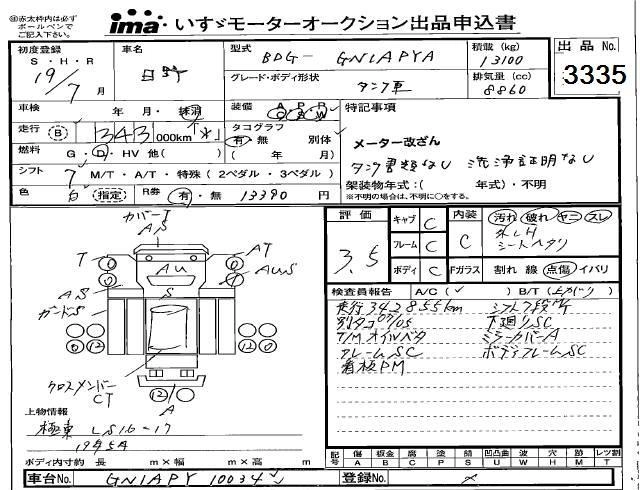 ※赤太枠内は必ず
ボールペンで
ご記入下さい。
ima いすゞモーターオークション出品申込書
初度登録 S・H・R 19/7 月
車名 日野
型式 BDG- GN1APYA
積載 (kg) 13100
出品 No. 3335
グレード・ボディ形状 タンク車
排気量 (cc) 8860
車検 年・月・抹消
装備 A P P A W
特記事項
走行 B 343000km
タコグラフ 有・無 別体
( 年 月)
メーター改ざん
燃料 G D・HV 他( )
タンク書類なし 洗浄証明なし
シフト 7 M/T・A/T・特殊 (2ペダル・3ペダル)
架装物年式:( 年式)・不明
※不明の場合は、不明に○をする。
色 白 (指定) R券 有・無 13390 円
評価 3.5
キャブ C
フレーム C
ボディ C
内装 C
汚れ 破れ ヤニ スレ
シートヘタリ
Fガラス 割れ 線 点傷 イバリ
カバーI
AS
T
AT
AU
AUS
S
AS
ガードS
12
クロスメンバー
CT
12
A
検査員報告 A/C ( ) B/T ( )
走行342855km シフト7段MT
別タコ07/05 下廻りSC
T/Mオイルベタ ミラーカバーA
フレームSC ボディフレームSC
看板PM
上物情報
極東 LS16-17
1945A
ボディ内寸約 長 m×幅 m×高 m
記号 傷A 板金B 腐C 塗P 部S 凹凸曲U 波W 穴H 跡M 割T レツ
車台No. GN1APY 10034
登録No.